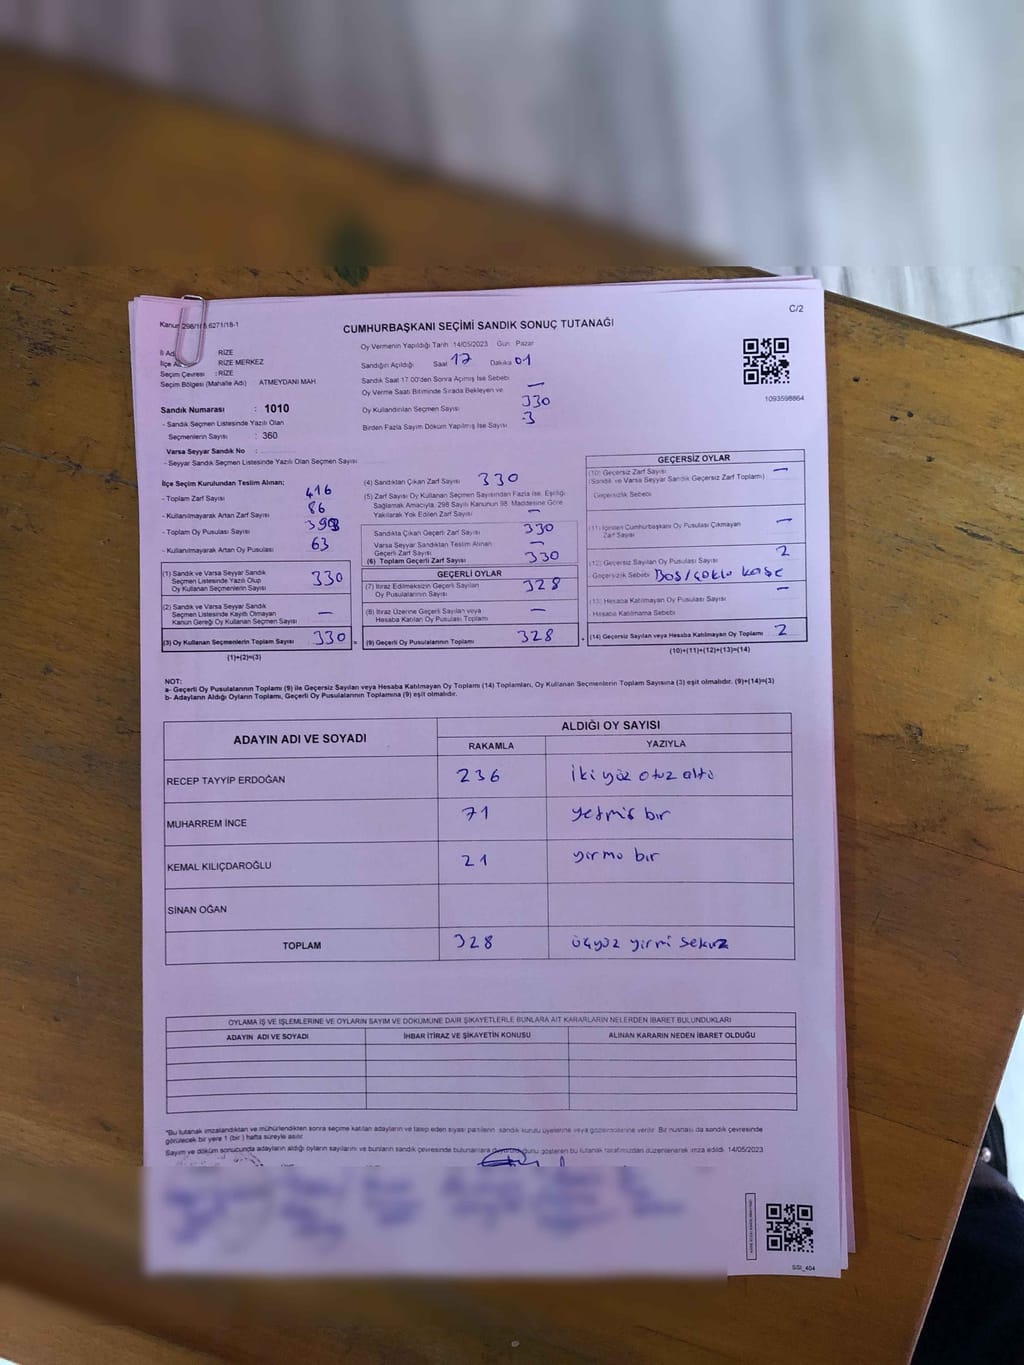 C/2
Kanun 298/1 6271/18-1
CUMHURBAŞKANI SEÇİMİ SANDIK SONUÇ TUTANAĞI
İl Ad RİZE
İlçe A RİZE MERKEZ
Seçim Çevresi : RİZE
Seçim Bölgesi (Mahalle Adı) ATMEYDANI MAH
Oy Vermenin Yapıldığı Tarih :14/05/2023 Gün : Pazar
Sandığın Açıldığı Saat 17 Dakika 01
Sandık Saat 17.00'den Sonra Açılmış İse Sebebi —
Oy Verme Saati Bitiminde Sırada Bekleyen ve
Oy Kullandırılan Seçmen Sayısı 330
Birden Fazla Sayım Döküm Yapılmış İse Sayısı -3
1093598864
Sandık Numarası : 1010
- Sandık Seçmen Listesinde Yazılı Olan
Seçmenlerin Sayısı : 360
Varsa Seyyar Sandık No :
- Seyyar Sandık Seçmen Listesinde Yazılı Olan Seçmen Sayısı
İlçe Seçim Kurulundan Teslim Alınan;
- Toplam Zarf Sayısı 416
- Kullanılmayarak Artan Zarf Sayısı 86
- Toplam Oy Pusulası Sayısı
- Kullanılmayarak Artan Oy Pusulası 63
(1) Sandık ve Varsa Seyyar Sandık
Seçmen Listesinde Yazılı Olup
Oy Kullanan Seçmenlerin Sayısı 330
(2) Sandık ve Varsa Seyyar Sandık
Seçmen Listesinde Kayıtlı Olmayan
Kanun Gereği Oy Kullanan Seçmen Sayısı —
(3) Oy Kullanan Seçmenlerin Toplam Sayısı 330 =
(1)+(2)=(3)
(4) Sandıktan Çıkan Zarf Sayısı 330
(5) Zarf Sayısı Oy Kullanan Seçmen Sayısından Fazla İse, Eşitliği
Sağlamak Amacıyla, 298 Sayılı Kanunun 98. Maddesine Göre
Yakılarak Yok Edilen Zarf Sayısı —
Sandıkta Çıkan Geçerli Zarf Sayısı 330
Varsa Seyyar Sandıktan Teslim Alınan
Geçerli Zarf Sayısı —
(6) Toplam Geçerli Zarf Sayısı 330
GEÇERLİ OYLAR
(7) İtiraz Edilmeksizin Geçerli Sayılan
Oy Pusulalarının Sayısı 328
(8) İtiraz Üzerine Geçerli Sayılan veya
Hesaba Katılan Oy Pusulası Toplamı —
(9) Geçerli Oy Pusulalarının Toplamı 328 +
GEÇERSİZ OYLAR
(10) Geçersiz Zarf Sayısı —
(Sandık ve Varsa Seyyar Sandık Geçersiz Zarf Toplamı)
Geçersizlik Sebebi
(11) İçinden Cumhurbaşkanı Oy Pusulası Çıkmayan
Zarf Sayısı —
(12) Geçersiz Sayılan Oy Pusulası Sayısı 2
Geçersizlik Sebebi Boş/çoklu kaşe
(13) Hesaba Katılmayan Oy Pusulası Sayısı —
Hesaba Katılmama Sebebi
(14) Geçersiz Sayılan veya Hesaba Katılmayan Oy Toplamı 2
(10)+(11)+(12)+(13)=(14)
NOT:
a- Geçerli Oy Pusulalarının Toplamı (9) ile Geçersiz Sayılan veya Hesaba Katılmayan Oy Toplamı (14) Toplamları, Oy Kullanan Seçmenlerin Toplam Sayısına (3) eşit olmalıdır. (9)+(14)=(3)
b- Adayların Aldığı Oyların Toplamı, Geçerli Oy Pusulalarının Toplamına (9) eşit olmalıdır.
ADAYIN ADI VE SOYADI
ALDIĞI OY SAYISI
RAKAMLA YAZIYLA
RECEP TAYYİP ERDOĞAN 236 iki yüz otuz altı
MUHARREM İNCE 71 yetmiş bir
KEMAL KILIÇDAROĞLU 21 yirmi bir
SİNAN OĞAN
TOPLAM 328 üçyüz yirmi sekiz
OYLAMA İŞ VE İŞLEMLERİNE VE OYLARIN SAYIM VE DÖKÜMÜNE DAİR ŞİKAYETLERLE BUNLARA AİT KARARLARIN NELERDEN İBARET BULUNDUKLARI
ADAYIN ADI VE SOYADI İHBAR İTİRAZ VE ŞİKAYETİN KONUSU ALINAN KARARIN NEDEN İBARET OLDUĞU
*Bu tutanak imzalandıktan ve mühürlendikten sonra seçime katılan adayların ve talep eden siyasi partilerin sandık kurulu üyelerine veya gözlemcilerine verilir. Bir nüshası da sandık çevresinde
görülecek bir yere 1 (bir ) hafta süreyle asılır.
Sayım ve döküm sonucunda adayların aldığı oyların sayılarını ve bunların sandık çevresinde bulunanlara gösteren bu tutanak tarafımızdan düzenlenerek imza edildi. 14/05/2023
SSI_404